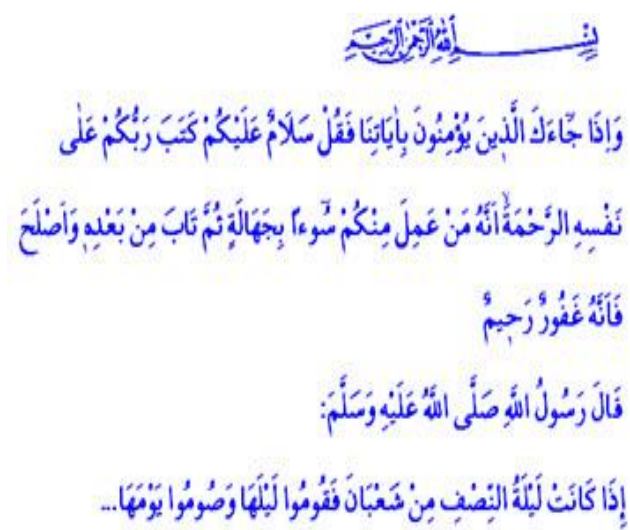 بِسْــــــــمِ اللّٰهِ الرَّحْمٰنِ الرَّحِيمِ
وَاِذَا جَٓاءَكَ الَّذ۪ينَ يُؤْمِنُونَ بِاٰيَاتِنَا فَقُلْ سَلَامٌ عَلَيْكُمْ كَتَبَ رَبُّكُمْ عَلٰى
نَفْسِهِ الرَّحْمَةَۙ اَنَّهُ مَنْ عَمِلَ مِنْكُمْ سُٓوءًا بِجَهَالَةٍ ثُمَّ تَابَ مِنْ بَعْدِه۪ وَاَصْلَحَ
فَاَنَّهُ غَفُورٌ رَح۪يمٌ
قَالَ رَسُولُ اللَّهِ صَلَّى اللَّهُ عَلَيْهِ وَسَلَّمَ:
إِذَا كَانَتْ لَيْلَةُ النِّصْفِ مِنْ شَعْبَانَ فَقُومُوا لَيْلَهَا وَصُومُوا يَوْمَهَا...